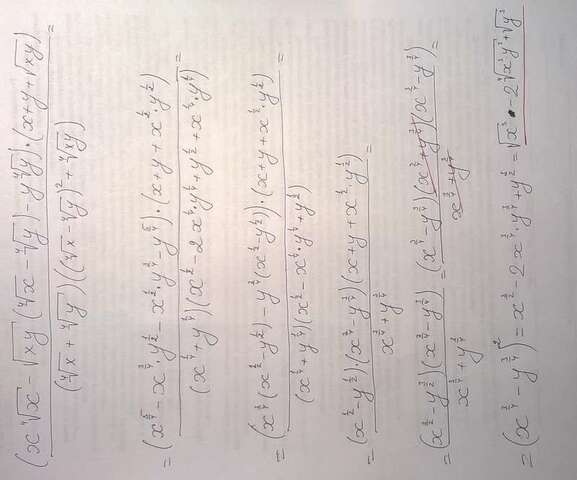 (x⁴√x − √xy (⁴√x − ⁴√y) − y⁴√y)·(x+y+√xy) =
(⁴√x + ⁴√y)((⁴√x − ⁴√y)² + ⁴√xy)
= (x^(5/4) − x^(3/4) y^(1/2) − x^(1/2)·y^(3/4) − y^(5/4))·(x+y+x^(1/2)·y^(1/2)) =
(x^(1/4) + y^(1/4))(x^(1/2) − 2x^(1/4)·y^(1/4) + y^(1/2) + x^(1/4)·y^(1/4))
= (x^(3/4)(x^(1/2) − y^(1/2)) − y^(3/4)(x^(1/2) − y^(1/2)))·(x+y+x^(1/2)·y^(1/2)) =
(x^(1/4) + y^(1/4))(x^(1/2) − x^(1/4)·y^(1/4) + y^(1/2))
= (x^(1/2) − y^(1/2))·(x^(3/4) − y^(3/4))(x+y+x^(1/2)·y^(1/2)) =
x^(3/4) + y^(3/4)
= (x^(3/2) − y^(3/2))(x^(3/4) − y^(3/4)) = (x^(3/4) − y^(3/4))(x^(3/4) + y^(3/4))(x^(3/4) − y^(3/4)) =
x^(3/4) + y^(3/4) x^(3/4) + y^(3/4)
= (x^(3/4) − y^(3/4))² = x^(3/2) − 2x^(3/4)·y^(3/4) + y^(3/2) = √x³ − 2⁴√x³y³ + √y³